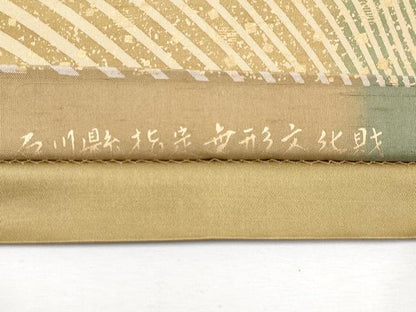 石川縣指定無形文化財